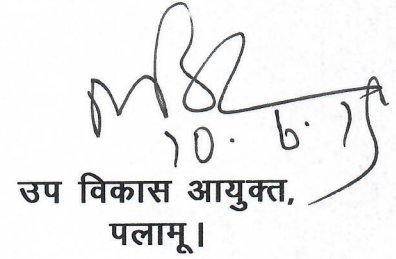 10. 6. 15
उप विकास आयुक्त,
पलामू।